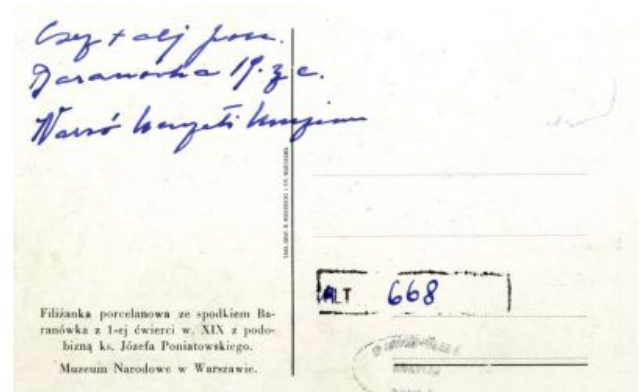 + alj porc.
Baranovka 19. sz. e.
Varsó Nemzeti Muzeum
Filiżanka porcelanowa ze spodkiem Ba-
ranówka z 1-ej ćwierci w. XIX z podo-
bizną ks. Józefa Poniatowskiego.
Muzeum Narodowe w Warszawie.
ALT 668